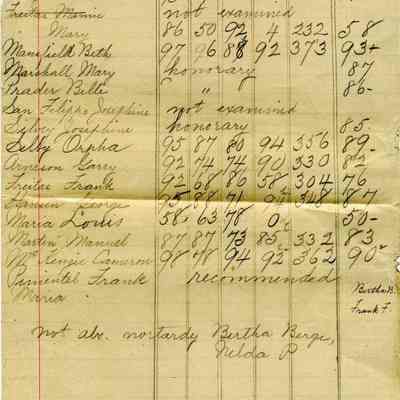 Freitas Mamie not examined
Mary 86 50 92 4 232 58
Mansfield Beth 97 96 88 92 373 93+
Marshall Mary honorary 87
Frader Belle " 86-
San Filippo Josephine not examined
Sylvey Josephine honorary 85
Selby Orpha 95 87 80 94 356 89-
Arneson Garry 92 74 74 90 330 82
Freitas Frank 92 68 86 58 304 76
Hansen George 95 88 71 94 348 87
Maria Louis 58 63 78 0 50-
Martin Manuel 87 87 73 85 332 83
McKenzie Cameron 98 78 94 92 362 90
Pimentel Frank recommended
Maria
Bertha B.
Frank F.
not abs. nor tardy Bertha Berge,
Nelda P